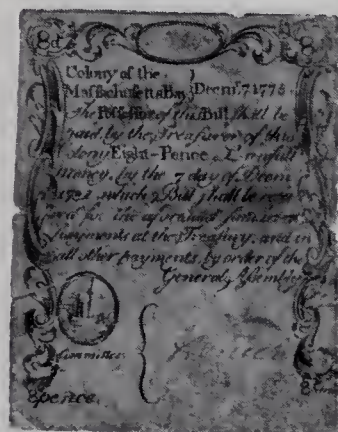 8d
Colony of the
Massachusetts Bay } Decm.r 7 1775
The Possessor of this Bill shall be
paid by the Treasurer of this
Colony Eight-Pence L. mfull
Money, by the 7 day of Decm
which Bill shall be
for the aforesaid
payments at the Treasury, and in
all other payments by order of the
General Assembly
Committee
8pence.